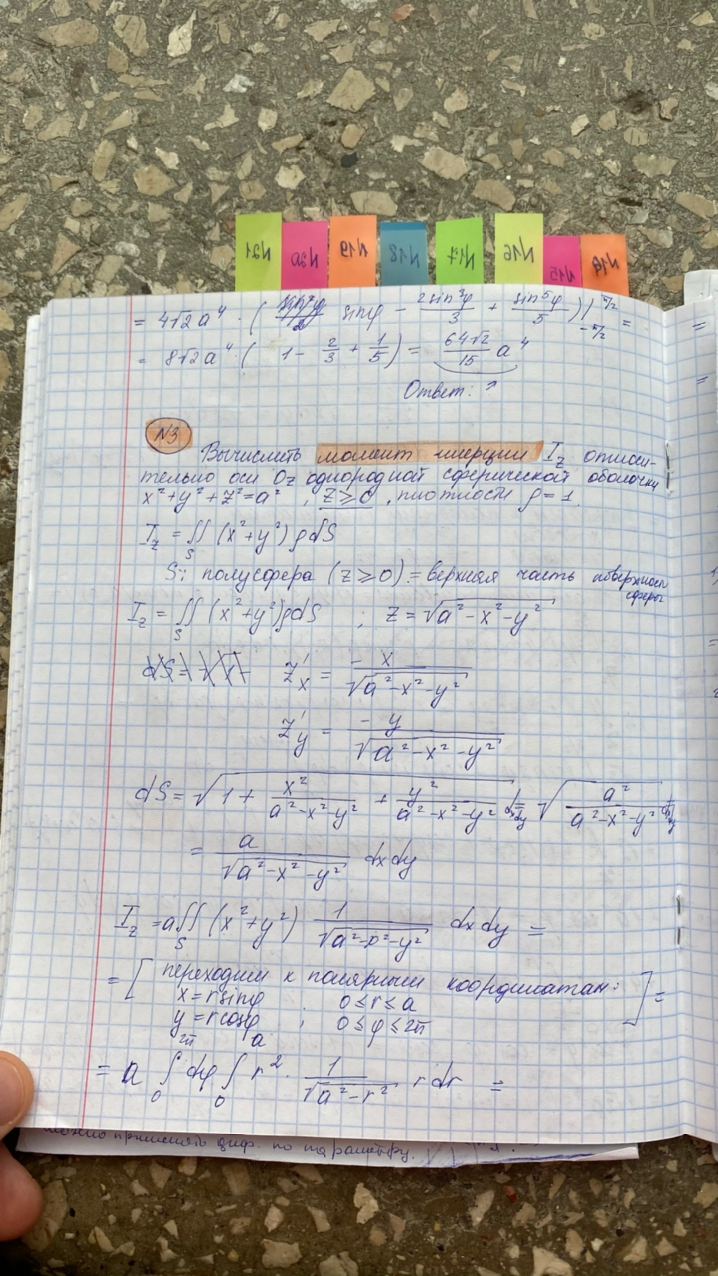 N21 N20 N19 N18 N17 N16 N15 N14
= 4√2 a⁴ · ( sinφ - 2sin³φ/3 + sin⁵φ/5 ) |_{-π/2}^{π/2} =
= 8√2 a⁴ · ( 1 - 2/3 + 1/5 ) = 64√2/15 a⁴
Ответ: ↗
N3
Вычислить момент инерции I_z относи-
тельно оси Oz однородной сферической оболочки
x² + y² + z² = a² , z ≥ 0 , плотности ρ = 1.
I_z = ∬_S (x² + y²) ρdS
S: полусфера (z ≥ 0) = верхняя часть поверхности сферы
I_z = ∬_S (x² + y²) ρdS , z = √(a² - x² - y²)
z'_x = -x/√(a² - x² - y²)
z'_y = -y/√(a² - x² - y²)
dS = √(1 + x²/(a² - x² - y²) + y²/(a² - x² - y²)) dxdy = √(a²/(a² - x² - y²)) dxdy
= a/√(a² - x² - y²) dxdy
I_z = a∬_S (x² + y²) 1/√(a² - x² - y²) dxdy =
= [ переходим к полярным координатам:
x = r sinφ ; 0 ≤ r ≤ a
y = r cosφ ; 0 ≤ φ ≤ 2π ] =
= a ∫_0^{2π} dφ ∫_0^a r² · 1/√(a² - r²) r dr =
можно применять диф. по параметру.